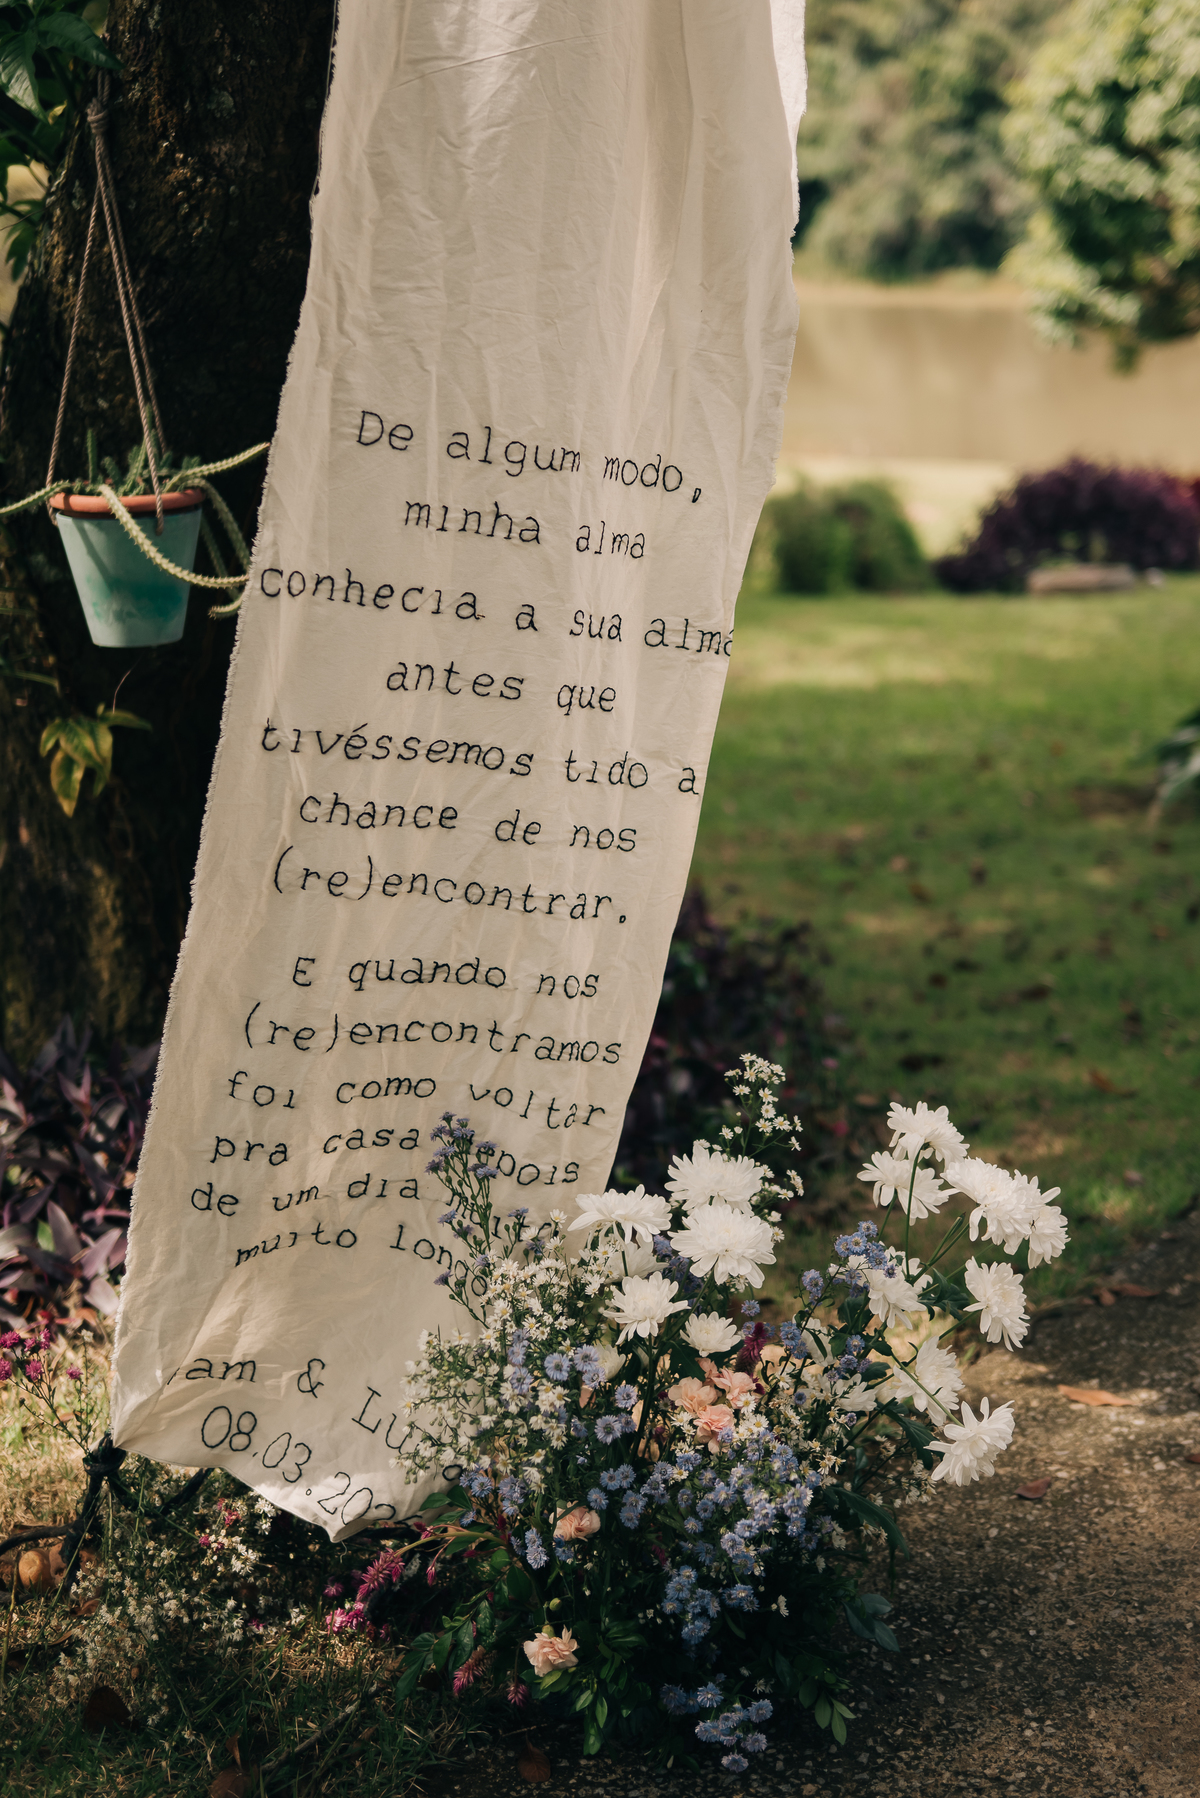 De algum modo,
minha alma
conhecia a sua alma
antes que
tivéssemos tido a
chance de nos
(re)encontrar.
E quando nos
(re)encontramos
foi como voltar
pra casa depois
de um dia muito
muito longo
&
08.03.202